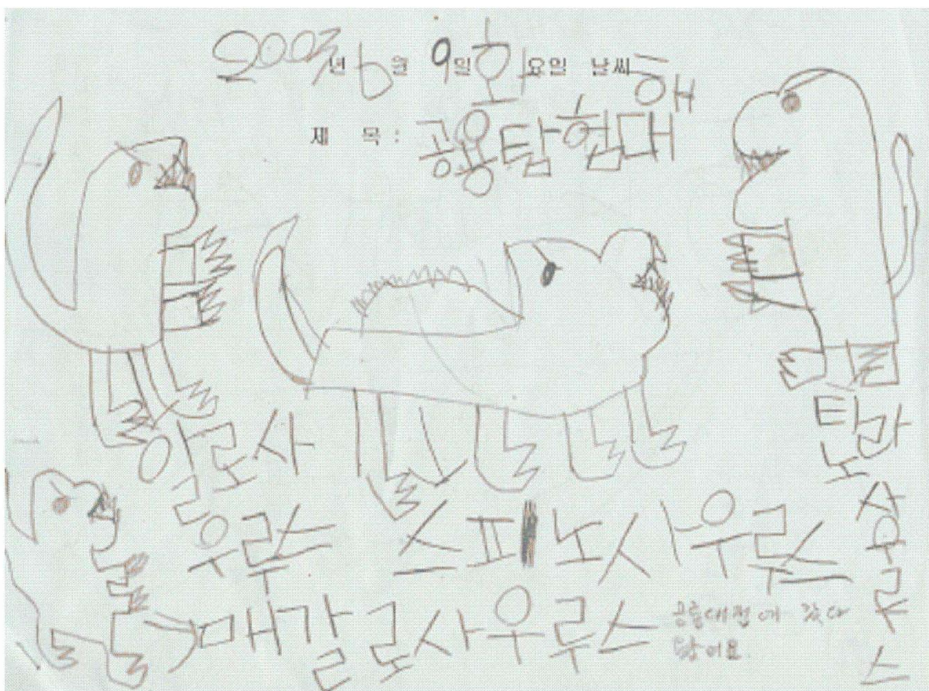 2003년 6월 9일 화요일 날씨 해
제 목 : 공용탐험대
알로사
우루스
스피노사우루스
티라
노
사
우
루
스
매갈로사우루스
공룡대전에 갔다